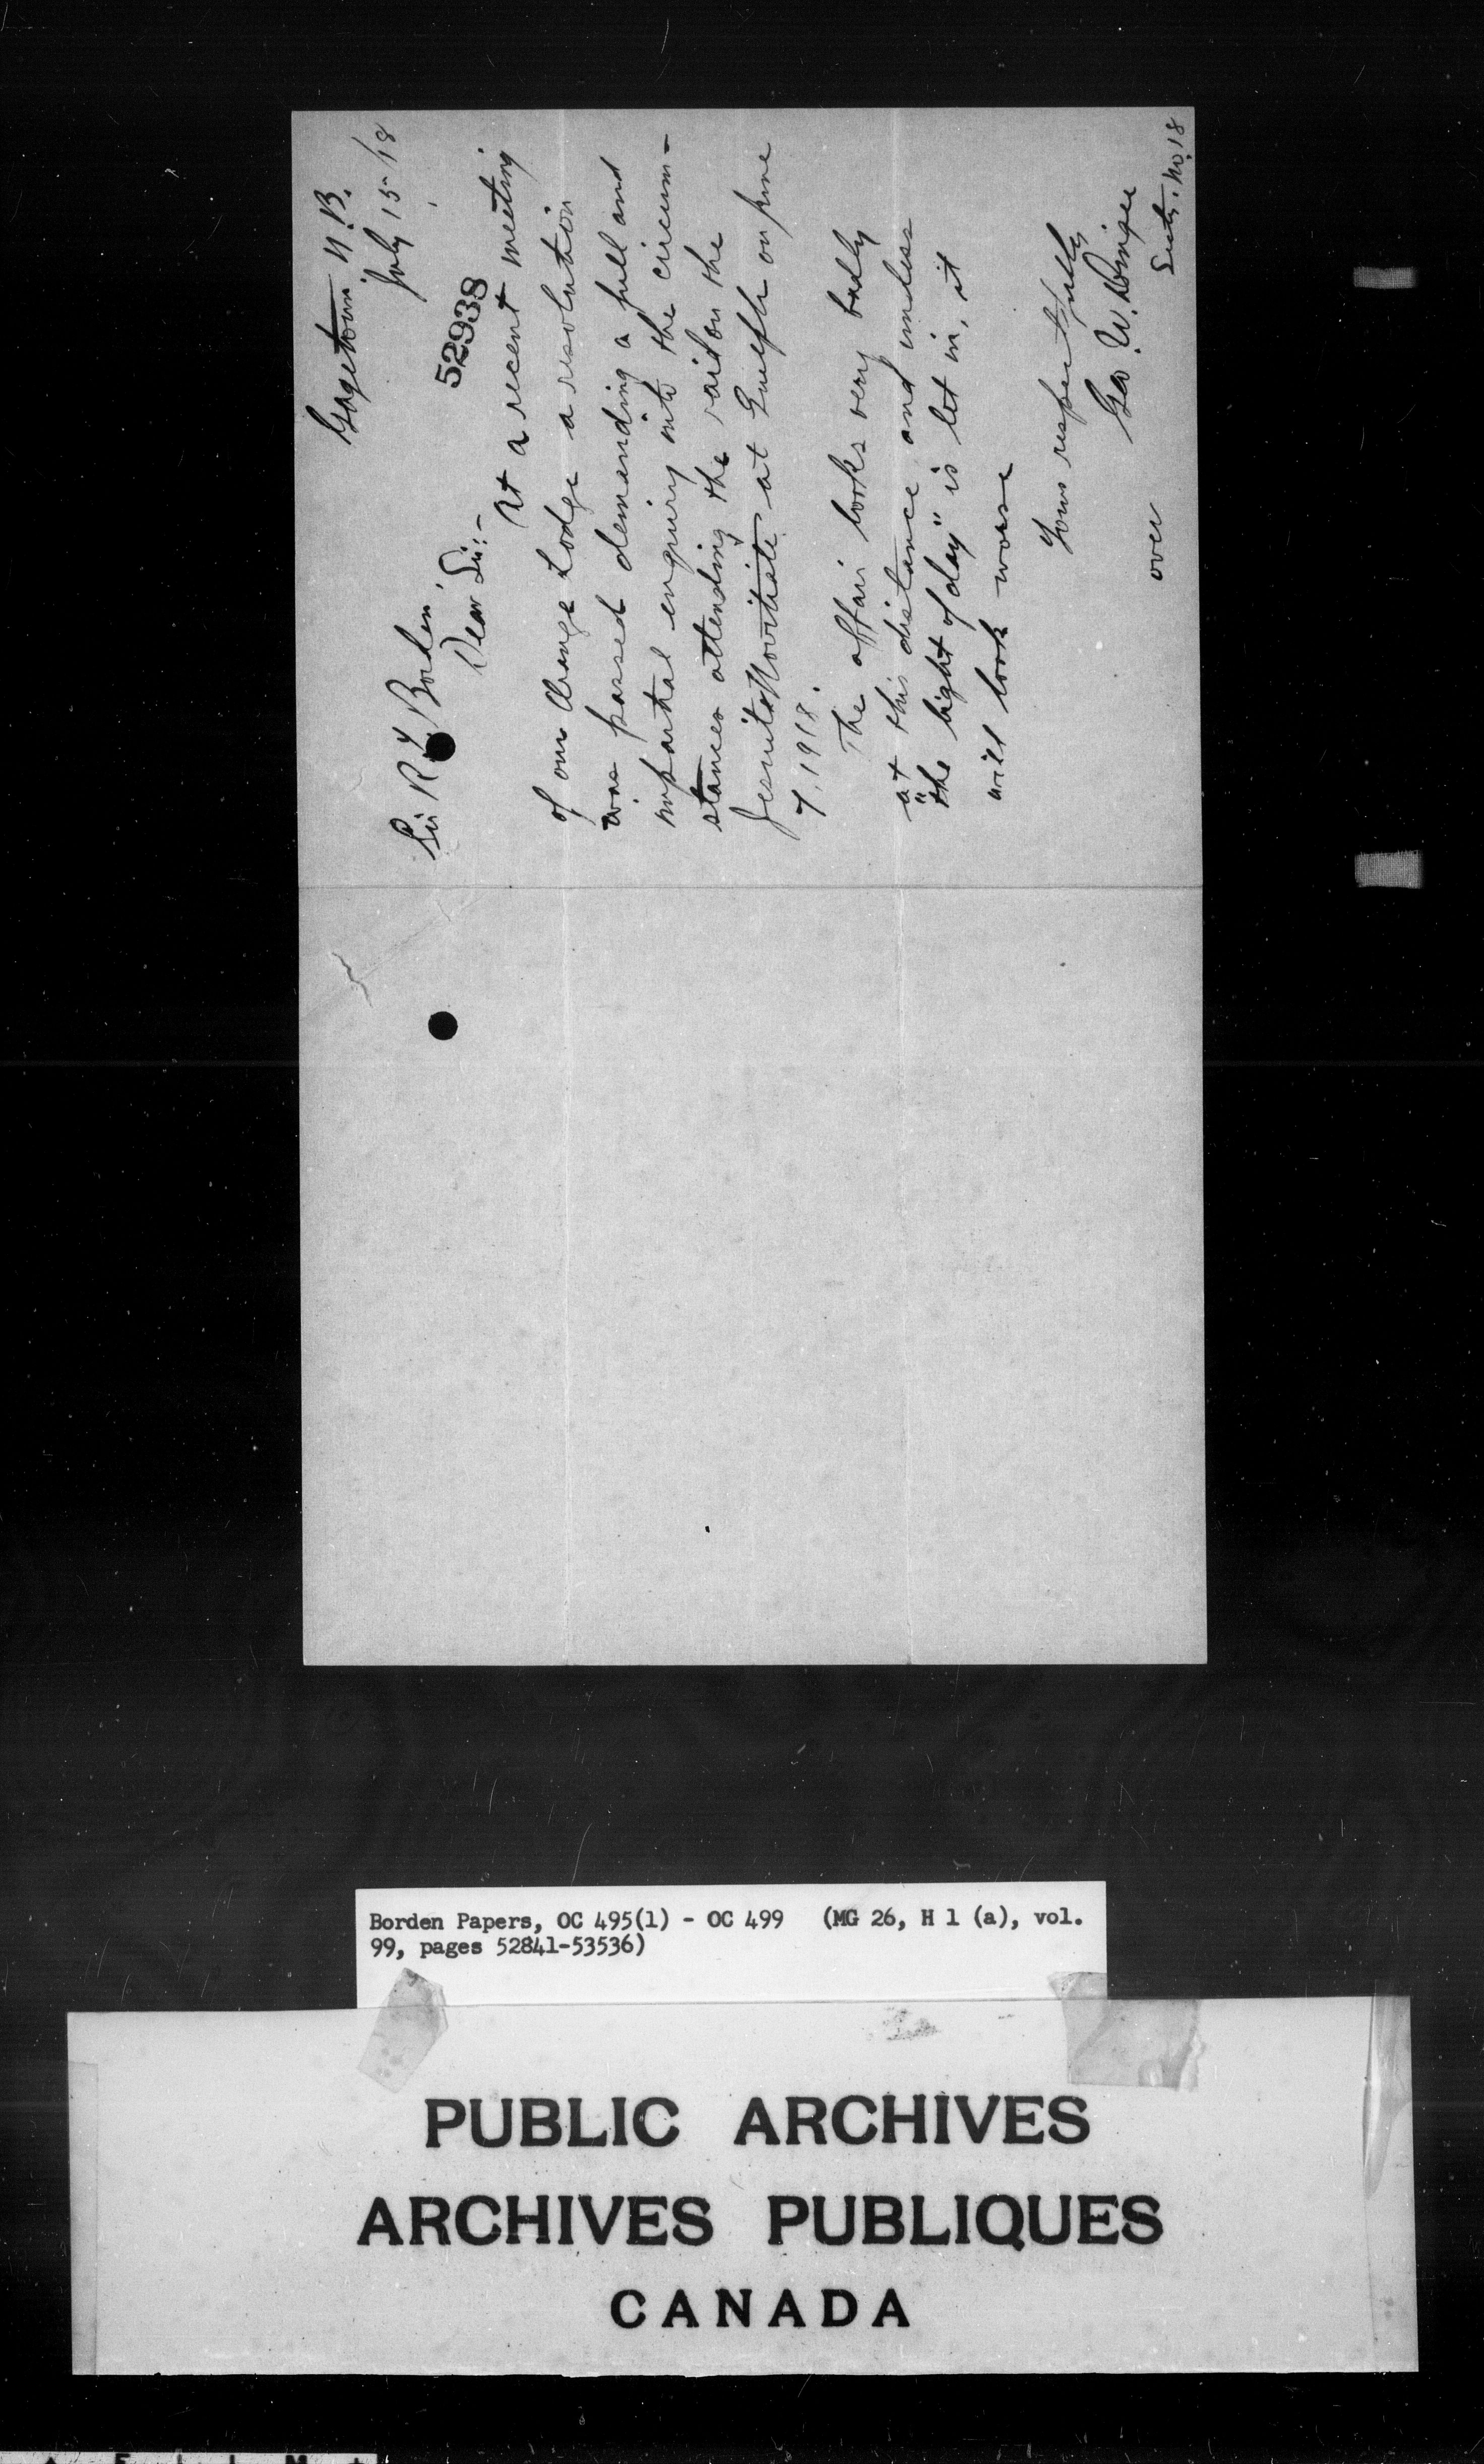 Gagetown N.B.
July 15/18
52938
Sir R L Borden,
Dear Sir:-
At a recent meeting
of our Orange Lodge a resolution
was passed demanding a full and
impartial enquiry into the circum-
stances attending the raid on the
Jesuits Novitiate at Guelph on June
7, 1918.
The affair looks very badly
at this distance and unless
"the light of day" is let in, it
will look worse
Yours respectfully
Geo. W.
Secty. No. 18
over
Borden Papers, OC 495(1) - OC 499 (MG 26, H 1 (a), vol.
99, pages 52841-53536)
PUBLIC ARCHIVES
ARCHIVES PUBLIQUES
CANADA